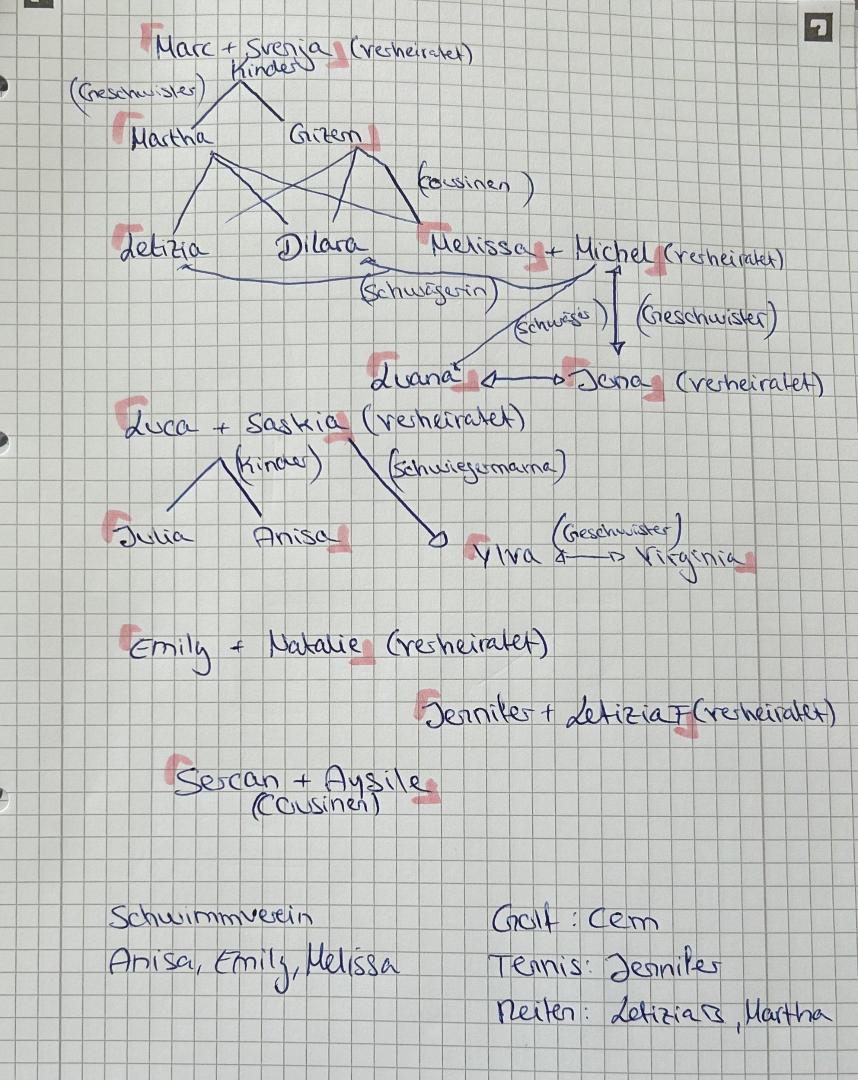 Marc + Svenja (verheiratet)
Kinder
(Geschwister)
Martha Gizem
(Cousinen)
Letizia Dilara Melissa + Michel (verheiratet)
(Schwägerin)
(Schwäger) (Geschwister)
Luana Jona (verheiratet)
Luca + Saskia (verheiratet)
(Kinder) (Schwiegermama)
Julia Anisa
(Geschwister)
Ylva Virginia
Emily + Natalie (verheiratet)
Jennifer + Letizia F (verheiratet)
Sercan + Aysile
(Cousinen)
Schwimmverein
Anisa, Emily, Melissa
Golf : Cem
Tennis: Jennifer
Reiten: Letizia B, Martha